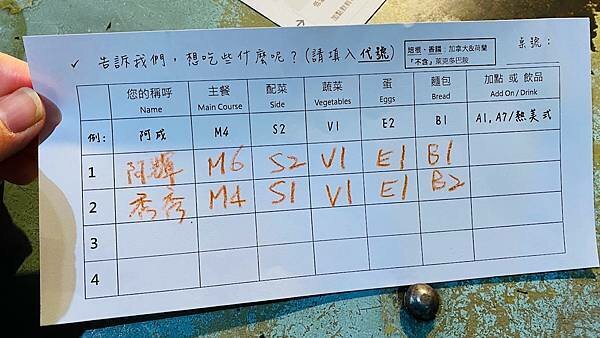 ✓ 告訴我們，想吃些什麼呢？(請填入代號)
培根、香腸：加拿大&荷蘭
『不含』萊克多巴胺
桌號：
您的稱呼 主餐 配菜 蔬菜 蛋 麵包 加點 或 飲品
Name Main Course Side Vegetables Eggs Bread Add On / Drink
例： 阿成 M4 S2 V1 E2 B1 A1, A7/熱美式
1 阿輝 M6 S2 V1 E1 B1
2 秀秀 M4 S1 V1 E1 B2
3
4